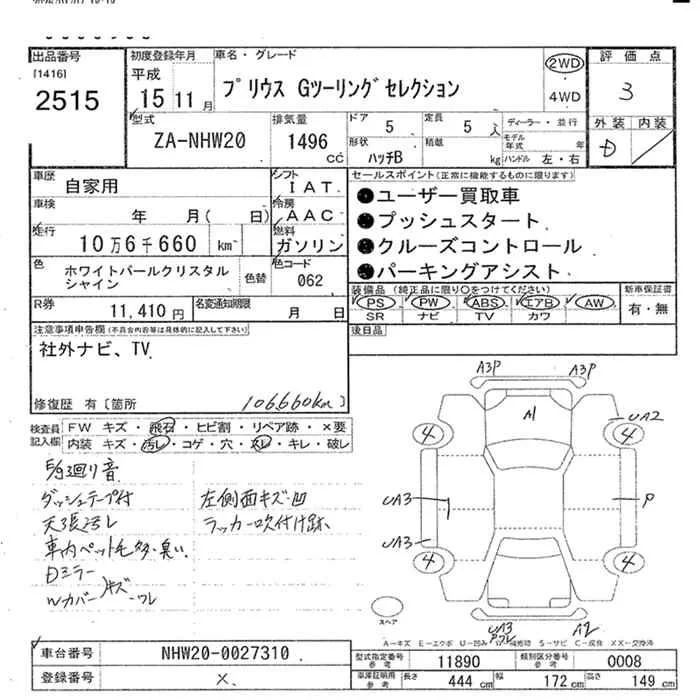 出品番号
[1416]
2515
初度登録年月
平成
15 11 月
車名・グレード
プリウス Gツーリングセレクション
2WD
4WD
評価点
3
外装 内装
D
型式
ZA-NHW20
排気量
1496
cc
ドア 5
定員 5 人
形状 ハッチB
積載 kg
ディーラー・並行
モデル年式 年
ハンドル 左・右
車歴
自家用
車検
年 月( 日)
走行
10万6千660 km
色
ホワイトパールクリスタル
シャイン
色替
シフト
IAT
冷房
AAC
燃料
ガソリン
色コード
062
R券
11,410 円
名変通知期限
月 日
セールスポイント(正常に機能するものに限ります)
●ユーザー買取車
●プッシュスタート
●クルーズコントロール
●パーキングアシスト
装備品 (純正品に限り○をつけてください)
PS PW ABS エアB AW
SR ナビ TV カワ
新車保証書
有・無
後日品
注意事項申告欄(不具合内容等は具体的に記入して下さい)
社外ナビ、TV
修復歴 有〔箇所
106,660km〕
検査員
記入欄
FW キズ・飛石・ヒビ割・リペア跡・×要
内装 キズ・汚レ・コゲ・穴・スレ・キレ・破レ
ダッシュテープ付
天張汚レ
車内ペット毛多・臭い
Dミラー
Wカバー キズ・ワレ
左側面キズ・凹
ラッカー吹付け跡
A3P A3P
M
UA2
4 4
UA3
P
UA3
4 4
スペア
UA3
A2
A=キズ E=エクボ U=凹み W=補修跡 S=サビ C=腐食 XX=交換済
車台番号
NHW20-0027310
登録番号
×
型式指定番号
参考
11890
類別区分番号
参考
0008
車庫証明用
参考
長さ 444 cm
幅 172 cm
高さ 149 cm